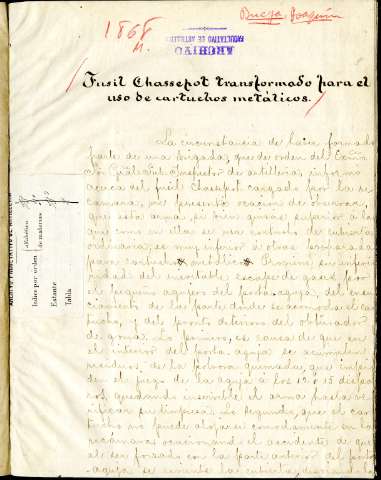 Bueza, Joaquín
1868
ARCHIVO
FACULTATIVO DE ARTILLERIA
Fusil Chassepot transformado para el
uso de cartuchos metálicos.
La circunstancia de haber formado
parte de una brigada, que de orden del
Sor General Inspector de artillería, informó
acerca del fusil Chassepot cargado por la re-
cámara, me presentó ocasión de observar
que esta arma, si bien quizás superior á las
que como en ella se usa cartucho de cubierta
ordinaria, es muy inferior á otras
para cartucho metálico. Proviene su infe-
rioridad del inevitable escape de gases por
el pequeño agujero del porta-aguja, del
de la parte donde se acomoda el car-
tucho, y del pronto deterioro del obturador
de goma. Lo primero, es causa de que en
el interior del porta-aguja se acumulen
residuos de la pólvora quemada, que impi-
den el juego de la aguja á los 12 ó 15 dispa-
ros, quedando inservible el arma hasta ve-
rificar su limpieza. Lo segundo, que el car-
tucho no puede alojarse cómodamente en la
recámara ocasionando el accidente de que
al ser forzado con la parte anterior del porta
aguja se reviente la cubierta,
Indice por orden
alfabético
de materias
Estante
Tabla